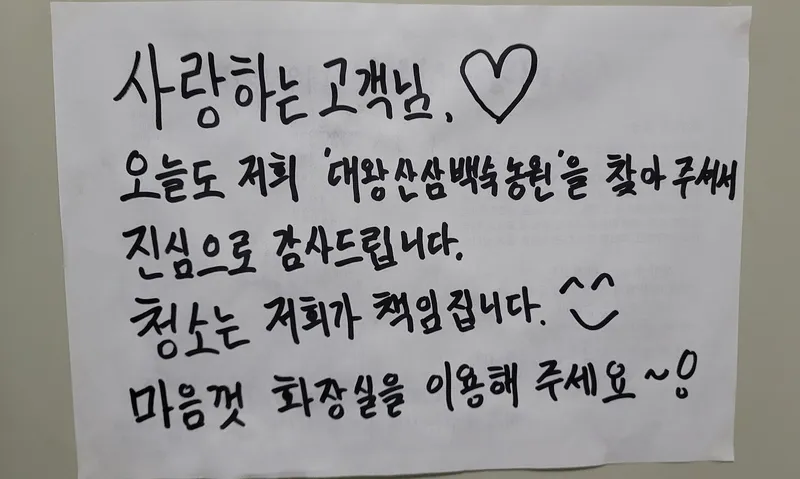 사랑하는 고객님, ♡
오늘도 저희 '대왕산삼백숙농원'을 찾아주셔서
진심으로 감사드립니다.
청소는 저희가 책임집니다. ^^
마음껏 화장실을 이용해 주세요~!